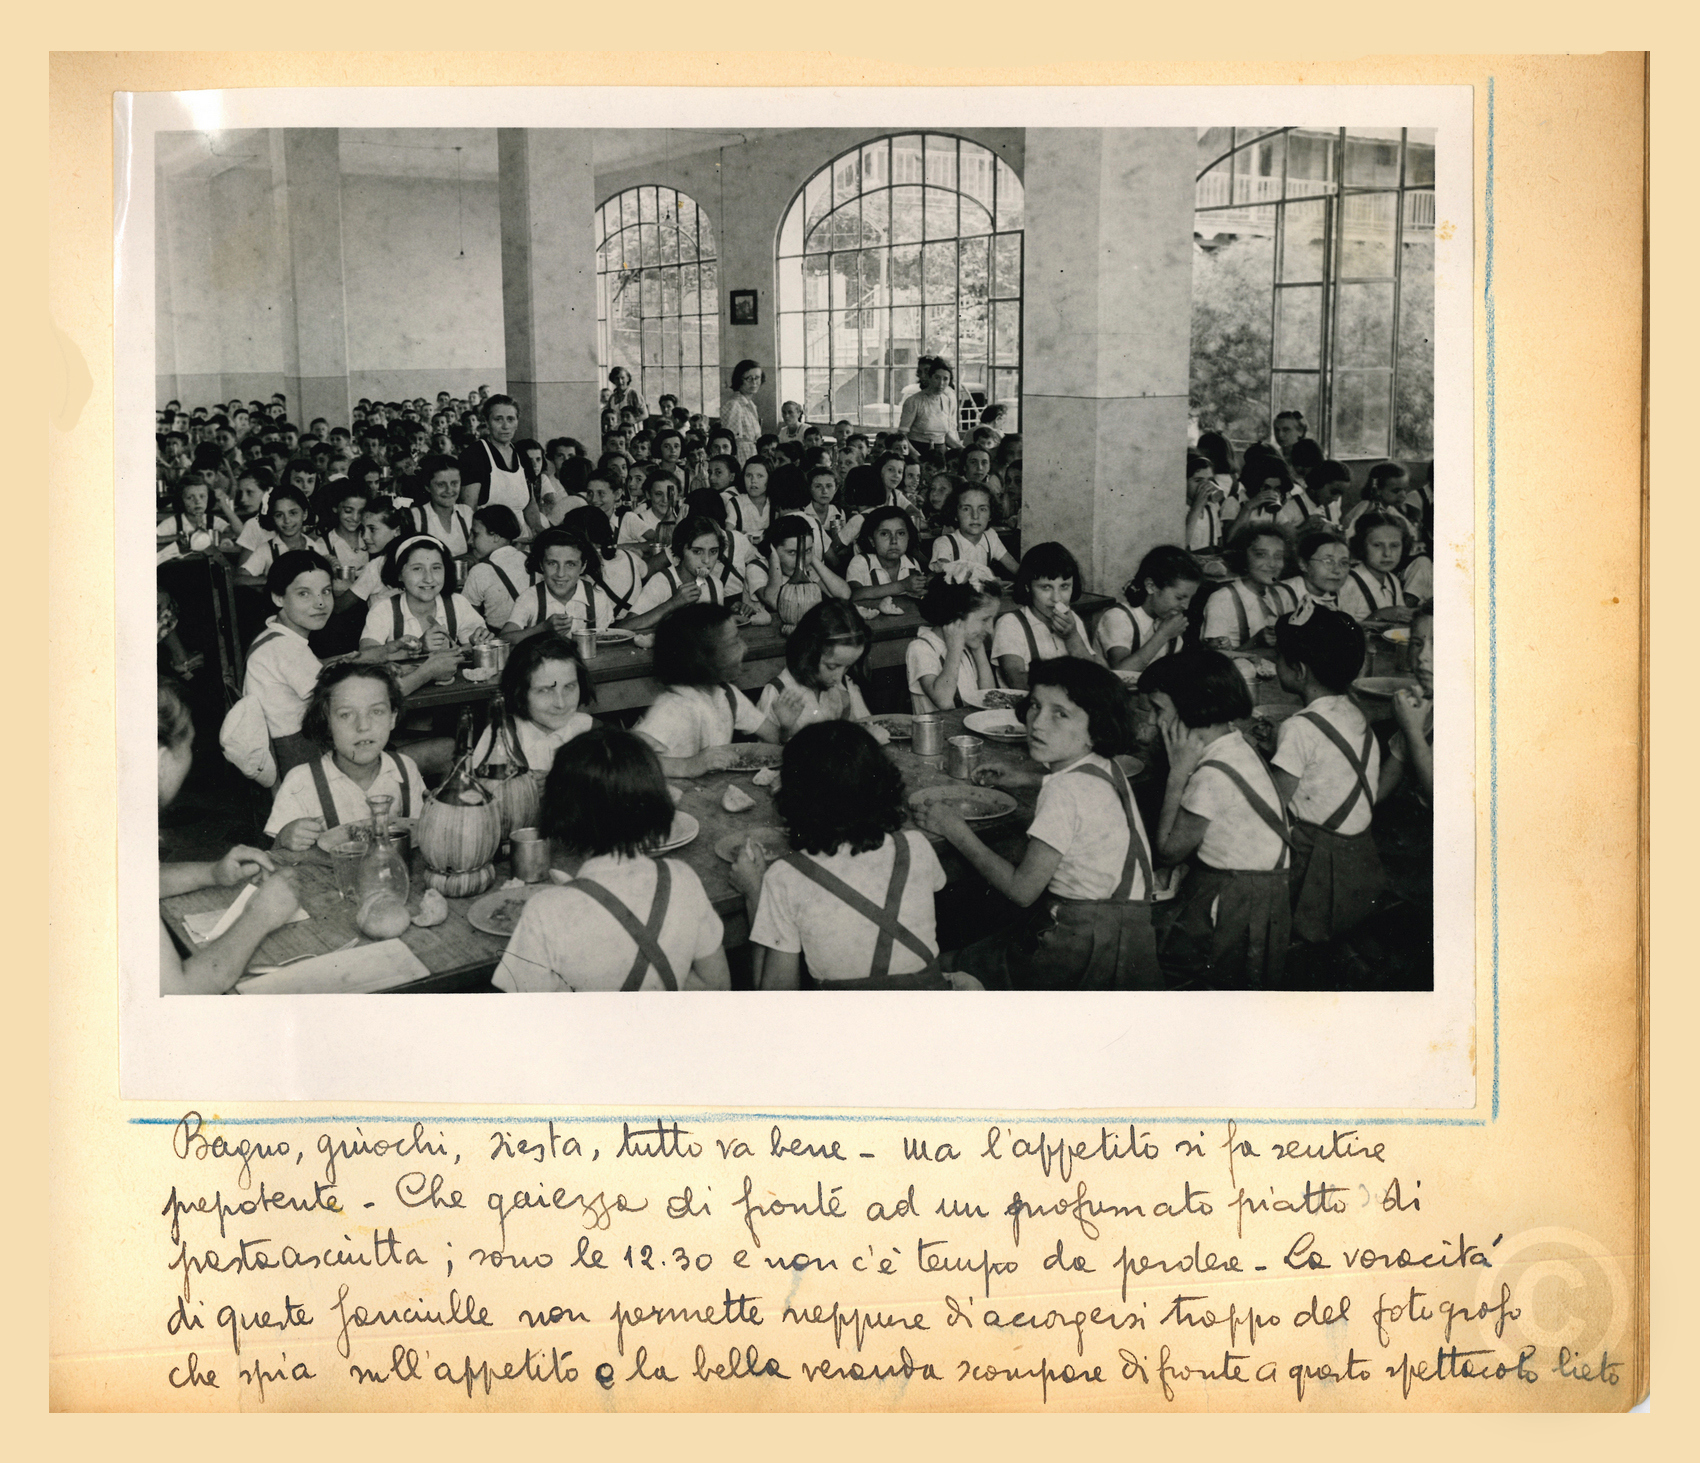 Bagno, giuochi, siesta, tutto va bene - Ma l'appetito si fa sentire
prepotente - Che gaiezza di fronte ad un profumato piatto di
pastasciutta ; sono le 12.30 e non c'è tempo da perdere - La voracità
di queste fanciulle non permette neppure di accorgersi troppo del fotografo
che spia sull'appetito e la bella veranda scompare di fronte a questo spettacolo lieto